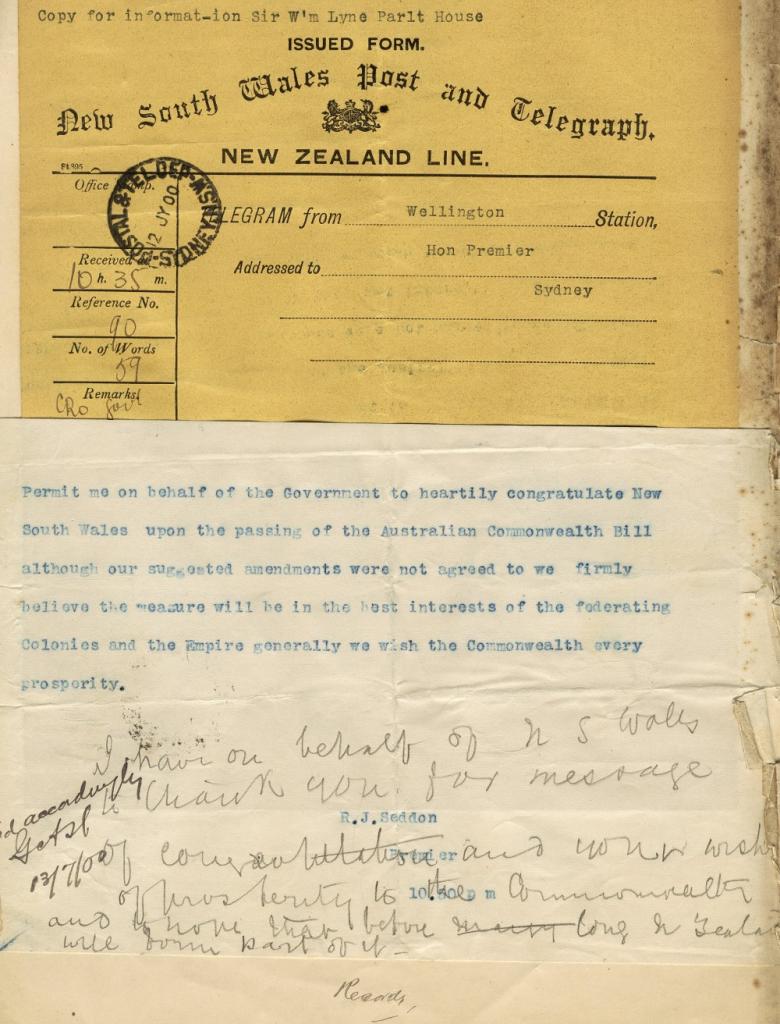 Copy for informat-ion Sir W'm Lyne Parlt House
ISSUED FORM.
New South Wales Post and Telegraph.
NEW ZEALAND LINE.
Office
TELEGRAM from Wellington Station,
POSTAL & TEL DEP. N.S.W.
12 JY 00
SYDNEY
Addressed to Hon Premier
Sydney
Received
10 h. 35 m.
Reference No.
90
No. of Words
59
Remarks
Permit me on behalf of the Government to heartily congratulate New
South Wales upon the passing of the Australian Commonwealth Bill
although our suggested amendments were not agreed to we firmly
believe the measure will be in the best interests of the federating
Colonies and the Empire generally we wish the Commonwealth every
prosperity.
I have on behalf of N S Wales
to thank you for message
R.J.Seddon
accordingly
13/7/00
of congratulation and your wish
Premier
of prosperity to the Commonwealth
p m
and to hope that before many long N Zealan
will form part of it -
Records,